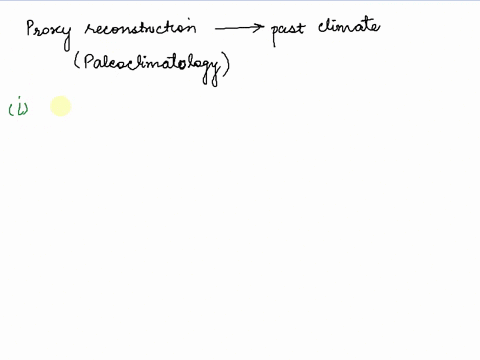 Proxy reconstruction → past climate
(Paleoclimatology)
(i)